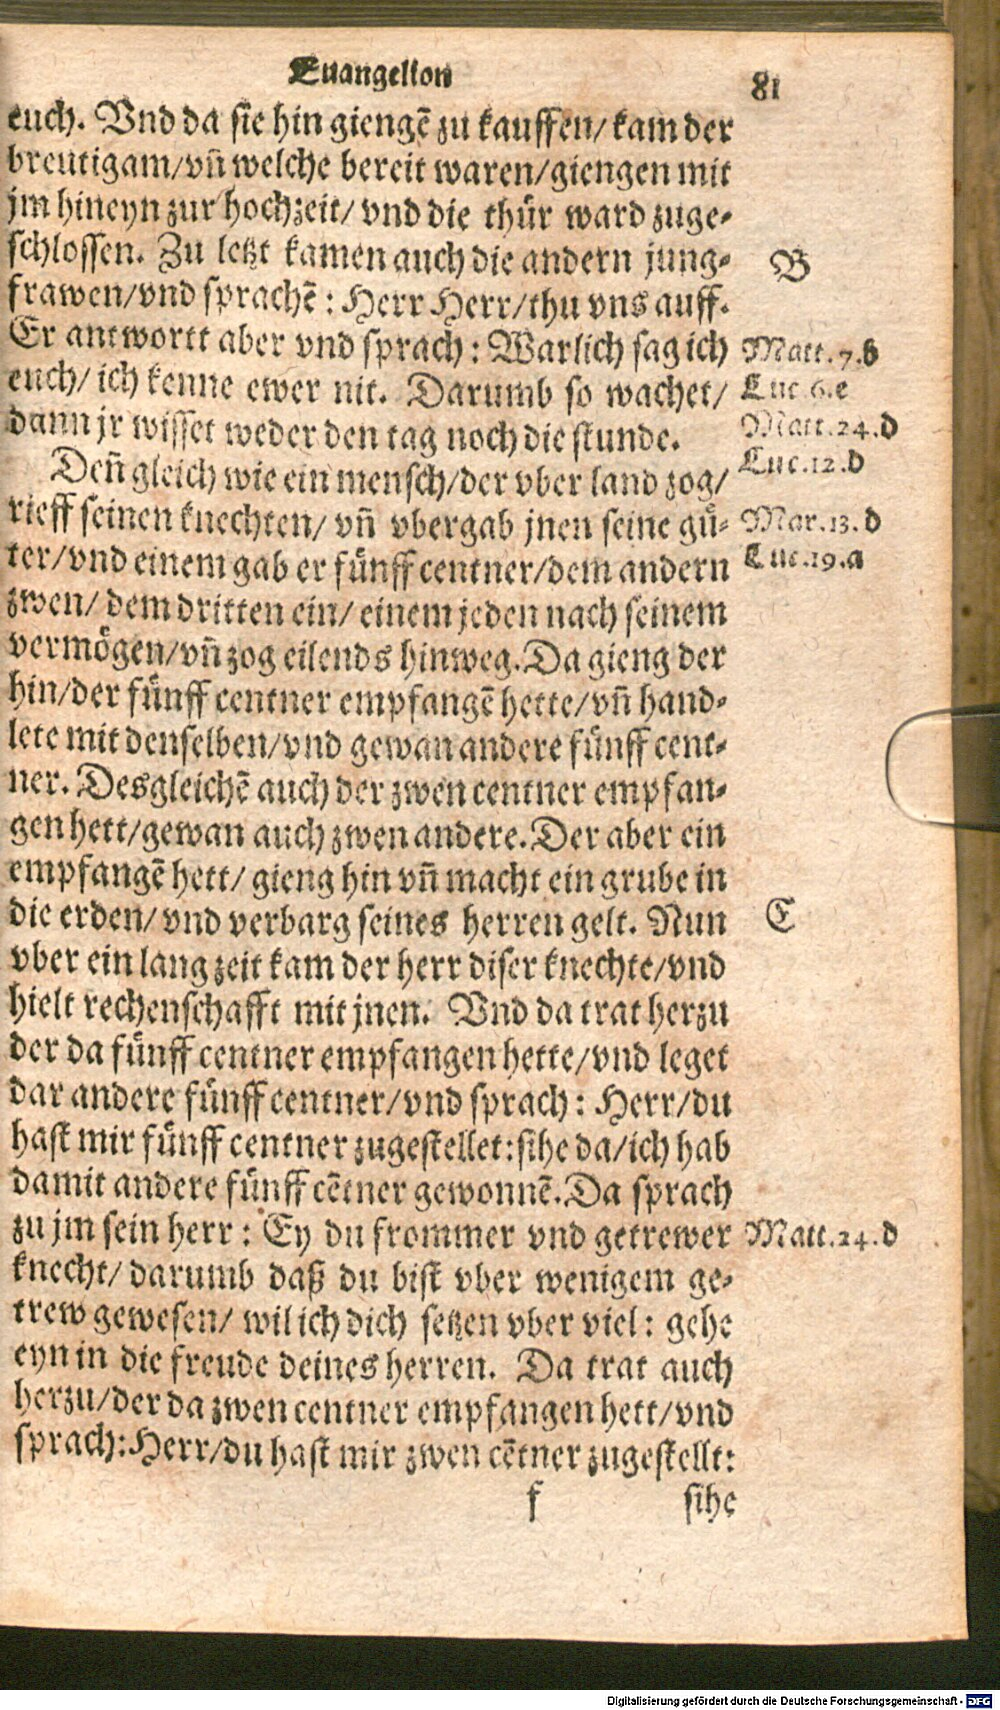 Euangelion 81
euch. Vnd da sie hin giengē zu kauffen/ kam der
breutigam/ vn̄ welche bereit waren/ giengen mit
jm hineyn zur hochzeit/ vnd die thür ward zuge-
schlossen. Zu letzt kamen auch die andern jung-
B
frawen/ vnd sprachē: Herr Herr/ thu vns auff.
Er antwortt aber vnd sprach: Warlich sag ich
Matt. 7. b
euch/ ich kenne ewer nit. Darumb so wachet/
Luc. 6. e
dann jr wisset weder den tag noch die stunde.
Matt. 24. d
Luc. 12. d
Den̄ gleich wie ein mensch/ der vber land zog/
rieff seinen knechten/ vn̄ vbergab jnen seine gü-
Mar. 13. d
ter/ vnd einem gab er fünff centner/ dem andern
Luc. 19. a
zwen/ dem dritten ein/ einem jeden nach seinem
vermögen/ vn̄ zog eilends hinweg. Da gieng der
hin/ der fünff centner empfangē hette/ vn̄ hand-
lete mit denselben/ vnd gewan andere fünff cent-
ner. Desgleichē auch der zwen centner empfan-
gen hett/ gewan auch zwen andere. Der aber ein
empfangē hett/ gieng hin vn̄ macht ein grube in
die erden/ vnd verbarg seines herren gelt. Nun
C
vber ein lang zeit kam der herr diser knechte/ vnd
hielt rechenschafft mit jnen. Vnd da trat herzu
der da fünff centner empfangen hette/ vnd leget
dar andere fünff centner/ vnd sprach: Herr/ du
hast mir fünff centner zugestellet: sihe da/ ich hab
damit andere fünff cētner gewonnē. Da sprach
zu jm sein herr: Ey du frommer vnd getrewer
Matt. 24. d
knecht/ darumb daß du bist vber wenigem ge-
trew gewesen/ wil ich dich setzen vber viel: gehe
eyn in die freude deines herren. Da trat auch
herzu/ der da zwen centner empfangen hett/ vnd
sprach: Herr/ du hast mir zwen cētner zugestellt:
f sihe
Digitalisierung gefördert durch die Deutsche Forschungsgemeinschaft - DFG